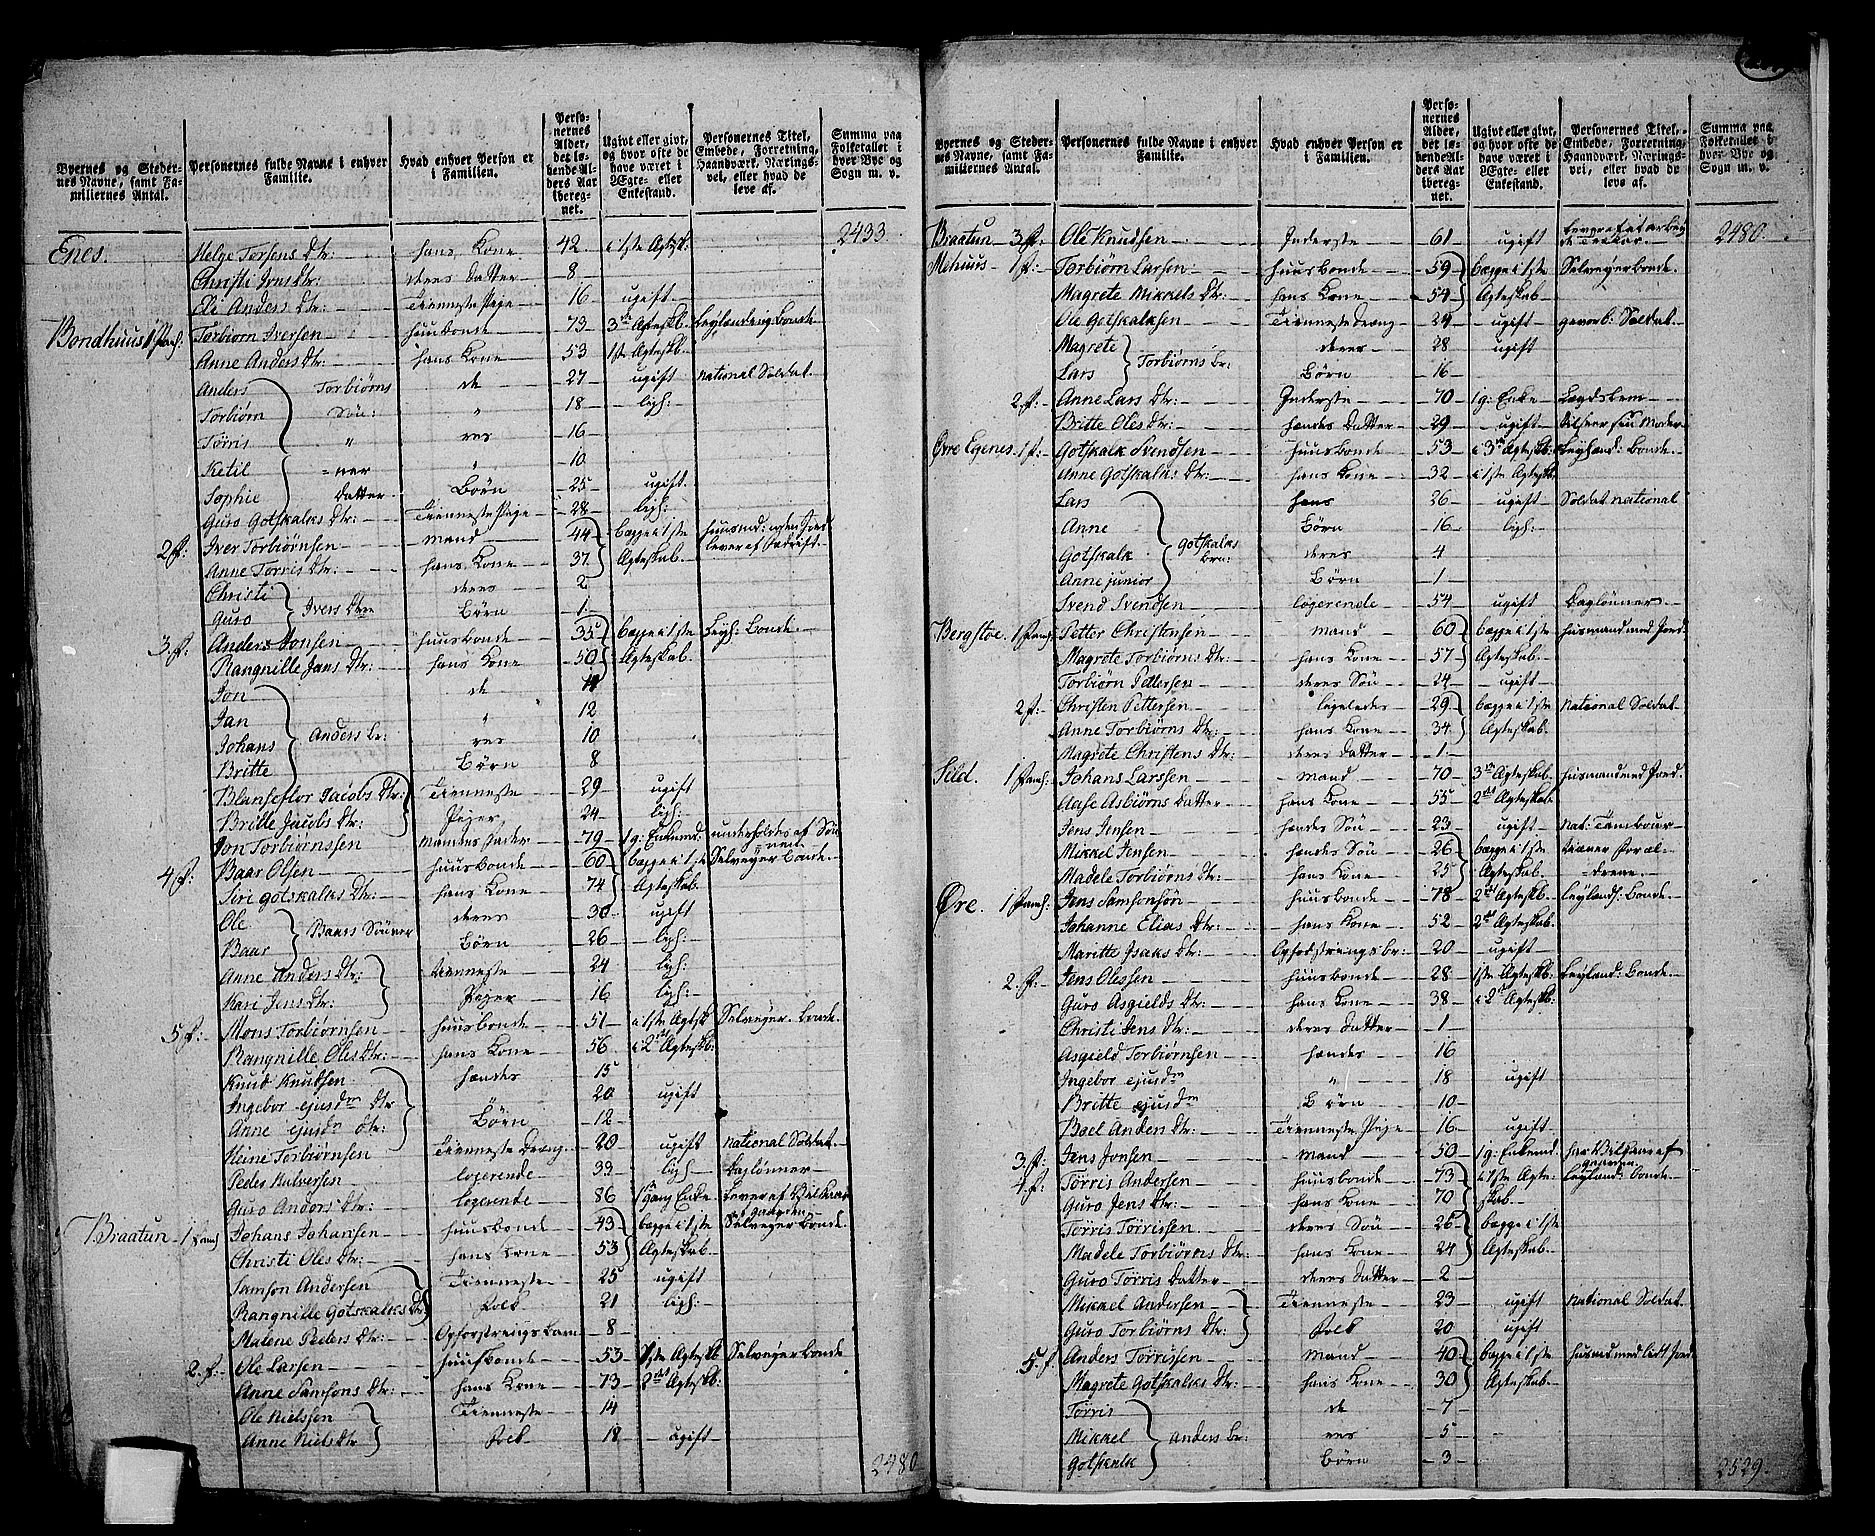 Byernes og Steder-
nes Navne, samt Fa-
miliernes Antal.
Personernes fulde Navne i enhver
Familie.
Hvad enhver Person er
i Familien.
Perso-
nernes
Alder,
det lø-
bende Al-
ders Aar
iberegnet.
Ugivt eller givt,
og hvor ofte de
have været i
Ægte- eller
Enkestand.
Personernes Titel,
Embede, Forretning,
Haandværk, Nærings-
vei, eller hvad de
leve af.
Summa paa
Folketallet i
hver Bye og
Sogn m. v.
2433
Enes. Helge Torsens Dtr: hans Kone 42 i 1ste Ægtesk:
Christi Jens Dtr: deres Datter 8
Eli Anders Dtr: Tienneste Pige 16 ugift
Bondhuus 1 Famh: Torbiørn Iversen huusbonde 73 3de Ægteskb. Leylændig Bonde
Anne Anders Dtr: hans Kone 53 1ste Ægteskb.
Anders Torbiørns de 27 ugift national Soldat.
Torbiørn Søn: " 18 ligh:
Tørris " res 16
Ketil =ner " 10
Sophie Datter Børn 25 ugift
Guro Gotskalks Dtr: Tienneste Pige 28 ligh:
2 f: Iver Torbiørnsen mand 44 begge i 1ste huusmd: uden Jord
Anne Tørris Dtr: hans Kone 37 Ægteskab. lever af Bedrift.
Christi deres 2
Guro Ivers Dtre Børn 1
3. f: Anders Jonsen huusbonde 35 begge i 1ste Leyl: Bonde
Rangnille Jans Dtr: hans Kone 50 Ægteskab.
Jon de 14
Jan " 12
Johans Anders br: res 10
Britte Børn 8
Blanseflor Jacobs Dtr: Tienneste 29 ugift
Britte Jacobs Dtr: Piger 24 ligh:
Jon Torbiørnssen Mandens Fader 79 1 g: Enkemd: underholdes af Søn
4 f: Baar Olsen huusbonde 60 begge i 1ste Selveyer Bonde
Siri Gotskalks Dtr: hans Kone 74 Ægteskab.
Ole deres 30 ugift
Baar Baars Sønner Børn 26 ligh:
Anne Anders Dtr: tienneste 24 ligh:
Kari Jens Dtr: Piger 16 ligh:
5 f: Mons Torbiørnsen huusbonde 51 i 1ste Ægtesk Selveyer Bonde.
Rangnille Oles Dtr: hans Kone 56 i 2de Ægteskb:
Knud Knudsen hendes 15
Ingebor ejusdm Dtr 20 ugift
Anne ejusdm Dtr: Børn 12
Heine Torbiørnsen Tienneste Dreng 20 ugift national Soldat.
Peder Halversen logerende 33 ligh: Daglønner
Guro Anders Dtr: logerende 86 1 gang Enke Lever af Vilkaar af gaarden
Braatun 1 Famh Johans Johansen huusbonde 43 begge i 1ste Selveyer Bonde
Christi Oles Dtr: hans Kone 53 Ægteskab
Samson Andersen Tienneste 25 ugift
Rangnille Gotskalks Dtr Folk 21 ligh:
Malene Peders Dtr: Opfostrings Barn 8
2. f. Ole Larsen huusbonde 53 1ste Ægteskb Selveyer Bonde
Anne Samsons Dtr: hans Kone 73 2den Ægteskb:
Ole Nielssen Tienneste 14
Anne Niels Dtr Folk 18 ugift
2480
Byernes og Steder-
nes Navne, samt Fa-
miliernes Antal.
Personernes fulde Navne i enhver
Familie.
Hvad enhver Person er
i Familien.
Perso-
nernes
Alder,
det lø-
bende Al-
ders Aar
iberegnet.
Ugivt eller givt,
og hvor ofte de
have været i
Ægte- eller
Enkestand.
Personernes Titel,
Embede, Forretning,
Haandværk, Nærings-
vei, eller hvad de
leve af.
Summa paa
Folketallet i
hver Bye og
Sogn m. v.
Braatun 3 f: Ole Knudsen Inderste 61 ugift 2480.
Mehuus 1 f: Torbiørn Larsen huusbonde 59 begge i 1ste Selveyer Bonde.
Magrete Mikkels Dtr: hans Kone 54 Ægteskab
Ole Gotskalksen Tienneste Dreng 24 ugift gevorb: Soldat.
Magrete deres 28 ugift
Lars Torbiørns br: Børn 16
2 f: Anne Lars Dtr: Inderste 70 1 g: Enke Lægdslem
Britte Oles Dtr: hendes Datter 29 ugift tilseer sin Moder
Øvre Egenes 1 f: Gotskalk Svendsen huusbonde 53 i 3de Ægteskb: Leylænd: Bonde.
Anne Gotskalks Dtr: hans Kone 32 i 1ste Ægteskb.
Lars hans 26 ugift Soldat national
Anne Børn 16 ligh:
Gotskalk Gotskalks brn: deres 4
Anne junior Børn 1
Svend Svendsen logerende 54 ugift Daglønner
Bergstøe. 1 Famh: Petter Christensen mand 60 begge i 1ste husmand med Jord
Magrete Torbiørns Dtr: hans Kone 57 Ægteskab.
Torbiørn Pettersen deres Søn 24 ugift
2 f: Christen Pettersen ligeledes 29 begge i 1ste national Soldat.
Anne Torbiørns Dtr: hans Kone 34 Ægteskab.
Magrete Christens Dtr: deres Datter 1
Sild. 1 Famh: Johans Larssen mand 70 3de Ægteskab husmand med Jord.
Aase Asbiørns Datter hans Kone 55 2det Ægteskab
Jens Jensen hendes Søn 23 ugift nat: Tambour
Mikkel Jensen hendes Søn 26 begge i 1ste tiener foræl-
Madele Torbiørns Dtr: hans Kone 25 Ægteskab. =drene.
Øre. 1 Famh: Jens Samsonsøn huusbonde 78 2det Ægteskb. Leylænd: Bonde.
Johanne Elias Dtr: hans Kone 52 2det Ægteskab.
Maritte Isaks Dtr: Opfostrings br: 20 ugift
2. f: Jens Olessen huusbonde 28 1ste Ægteskb: Leyland: Bonde
Guro Asgields Dtr: hans Kone 38 i 2det Ægteskb:
Christi Jens Dtr: deres Datter 1
Asgield Torbiørnsen hendes 16
Ingebor ejusdm " 18 ugift
Britte ejusdm Børn 10
Boel Anden Dtr: Tienneste Pige 16 ugift
3 f: Jens Jonsen mand 50 1 g: Enkemd: har Vilkaar af gaarden
4 f: Tørris Andersen huusbonde 73 i 1ste Ægte- Leyland: Bonde
Guro Jens Dtr: hans Kone 70 skab.
Tørris Tørrissen deres Søn 26 begge i 1ste
Madele Torbiørns Dtr: hans Kone 24 Ægteskab.
Guro Tørris Datter deres Datter 2
Mikkel Andersen Tienneste 23 ugift national Soldat.
Guro Torbiørns Dtr: Folk 20 ugift
5. f Anders Tørrissen mand 40 begge i 1ste husmd med lidt Jord
Magrete Gotskalks Dtr: hans Kone 30 Ægteskab.
Tørris de 7
Mikkel Anders br: res 5
Gotskalk Børn 3
2529.